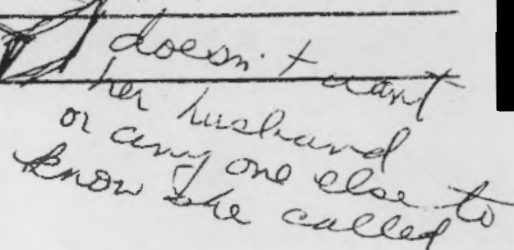 doesn't want
her husband
or any one else to
know she called